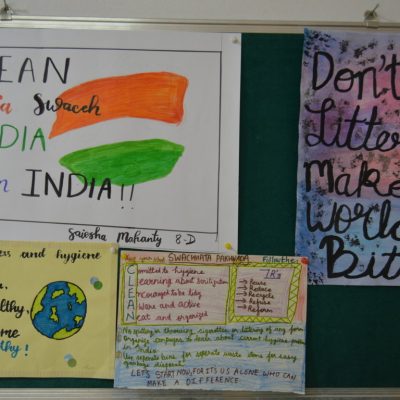 EAN
Swaceh
DIA
INDIA!!
Saiesha Mohanty 8-D
Don't
Litter
Make
World
Bit
and hygiene
SWACHHATA PAKHWADA Follow the:
Committed to hygiene
Learning about sanitization
Encouraged to be tidy
Aware and active
Neat and organized
→ Reuse
→ Reduce
→ Recycle
→ Refuse
→ Reform
No spitting or throwing cigarettes or littering of any form
Organize campaigns to learn about current hygiene problems
in India
Use seperate bins for seperate waste items for easy
garbage disposal
LETS START NOW, FOR ITS US ALONE WHO CAN
MAKE A DIFFERENCE